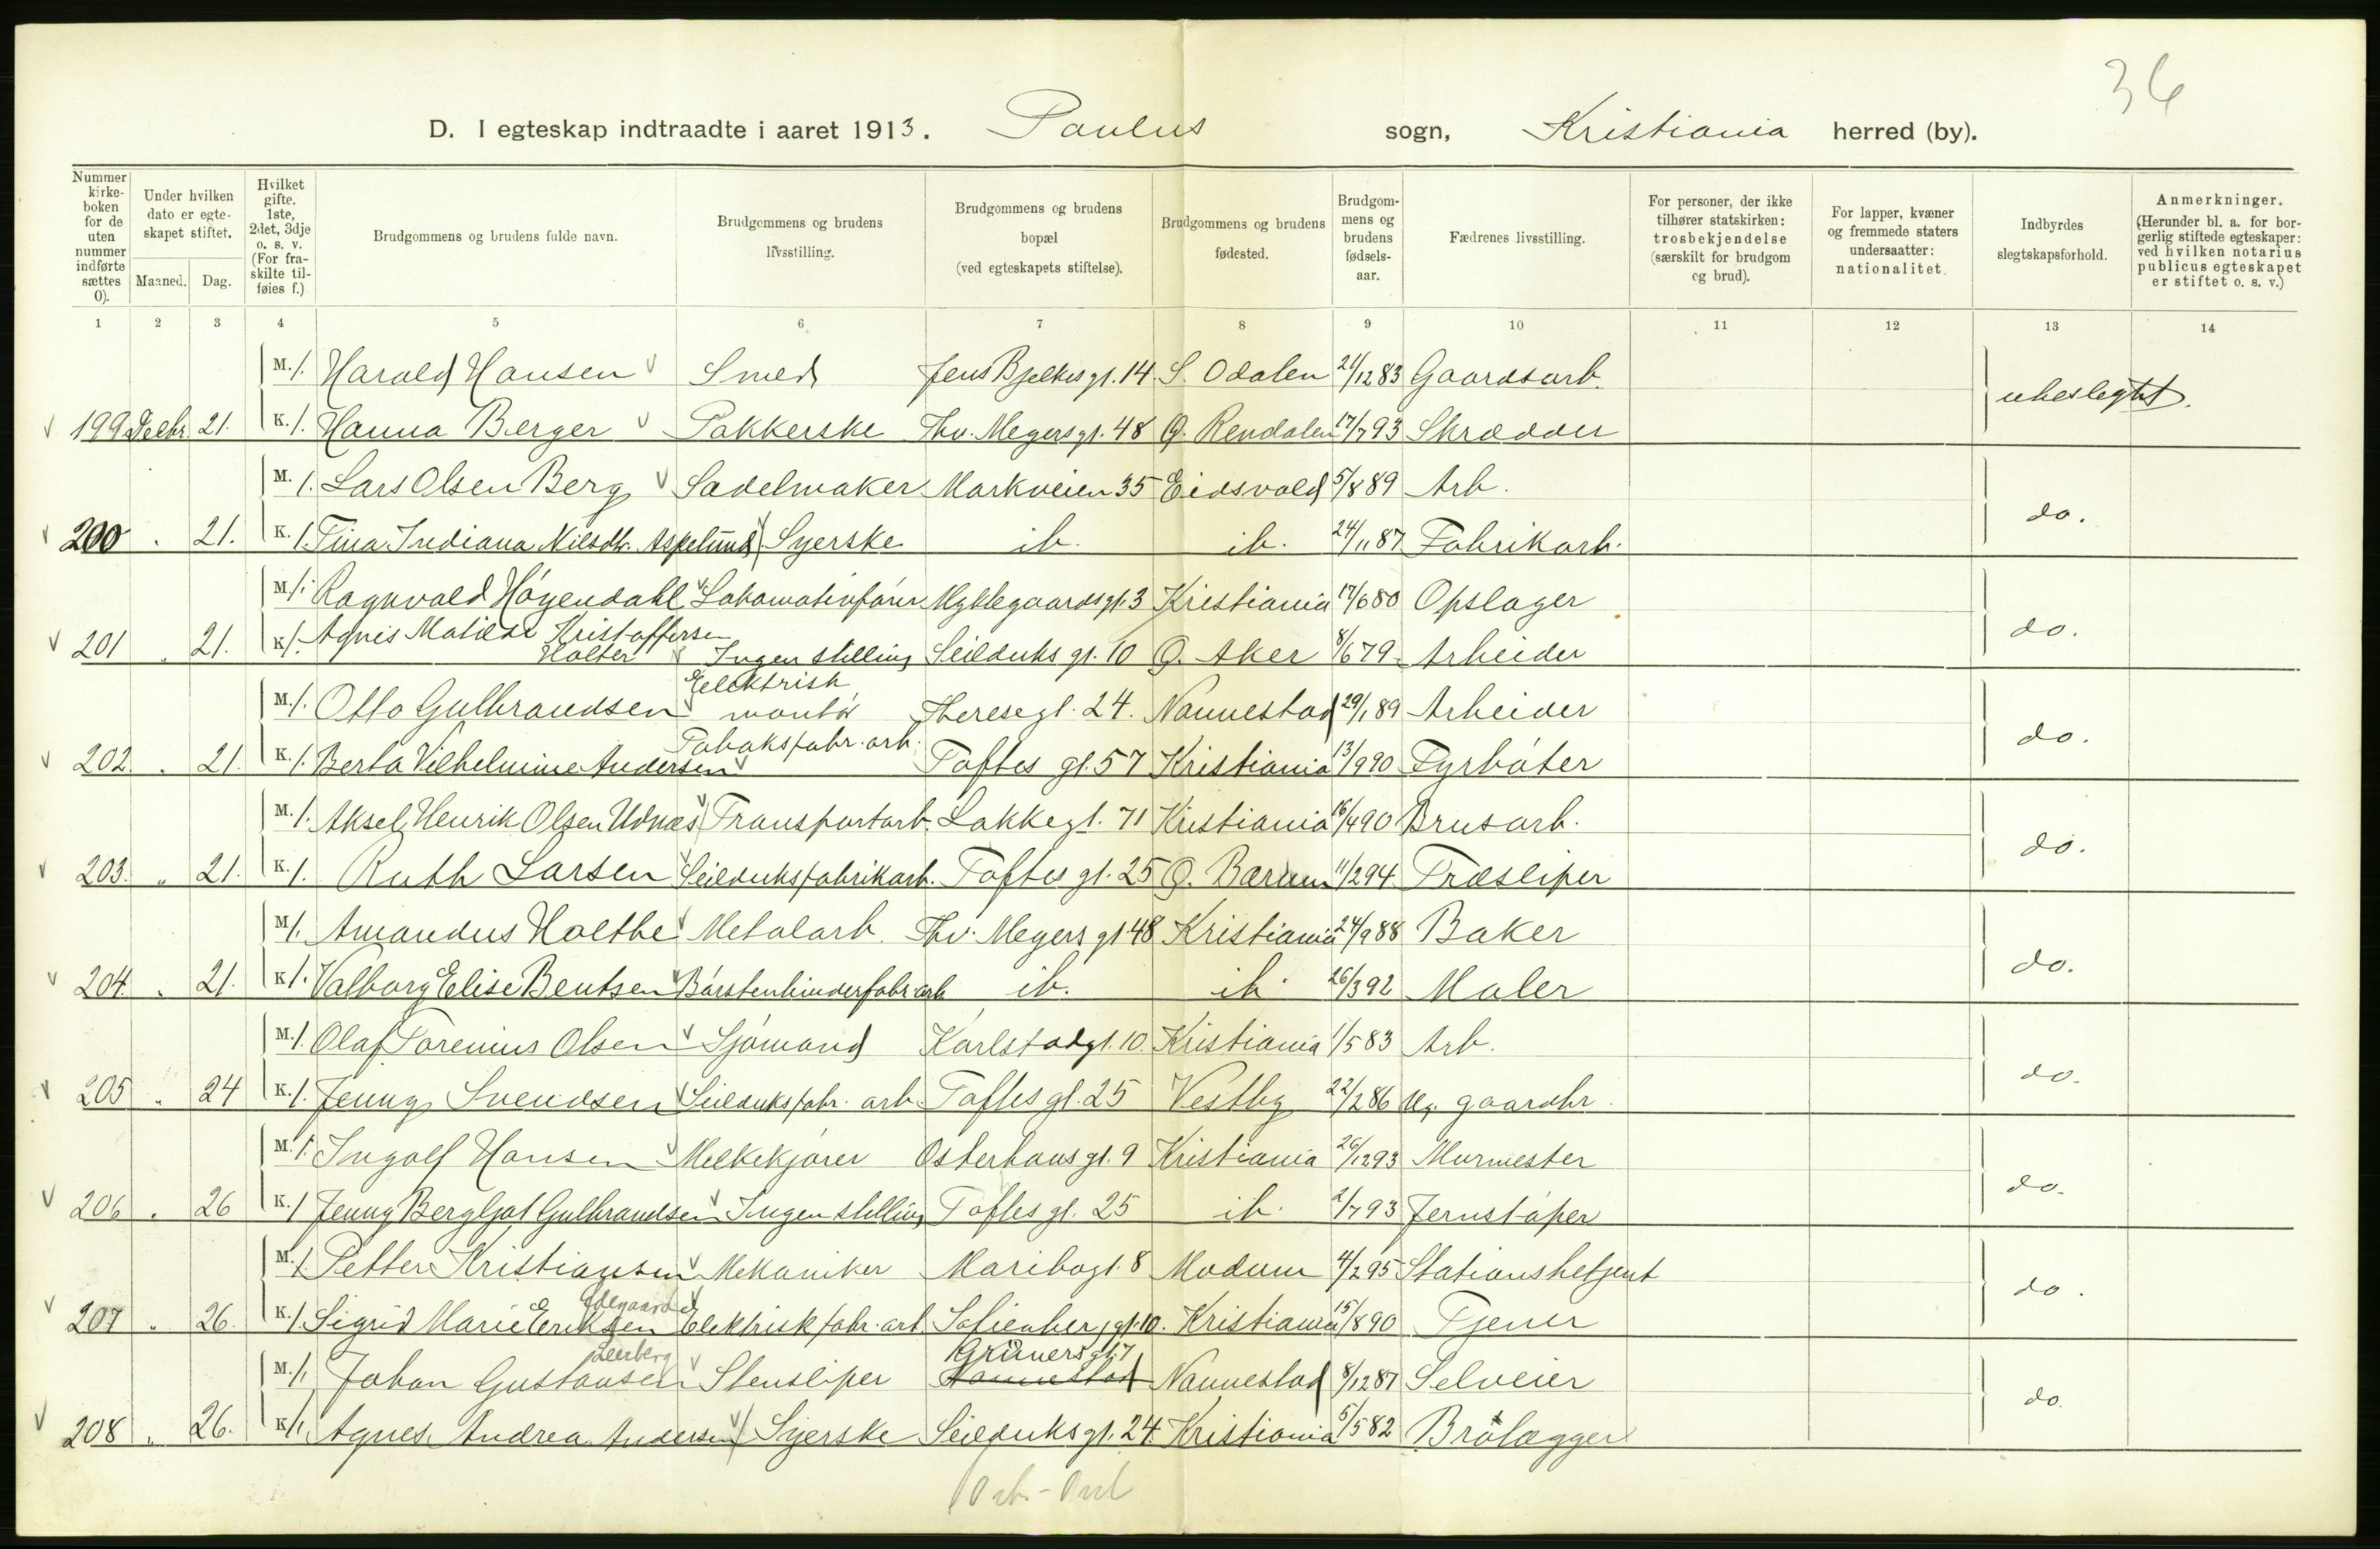 36
D. I egteskap indtraadte i aaret 1913. Paulus sogn, Kristiania herred (by).
Nummer kirkeboken for de uten nummer indførte sættes 0).
Under hvilken dato er egteskapet stiftet.
Maaned. Dag.
Hvilket gifte. 1ste, 2det, 3dje o. s. v. (For fraskilte tilføies f.)
Brudgommens og brudens fulde navn.
Brudgommens og brudens livsstilling.
Brudgommens og brudens bopæl (ved egteskapets stiftelse).
Brudgommens og brudens fødested.
Brudgommens og brudens fødselsaar.
Fædrenes livsstilling.
For personer, der ikke tilhører statskirken: trosbekjendelse (særskilt for brudgom og brud).
For lapper, kvæner og fremmede staters undersaatter: nationalitet.
Indbyrdes slegtskapsforhold.
Anmerkninger. (Herunder bl. a. for borgerlig stiftede egteskaper: ved hvilken notarius publicus egteskapet er stiftet o. s. v.)
1 2 3 4 5 6 7 8 9 10 11 12 13 14
M. 1. Harald Hansen Smed Jens Bjelkes gt. 14 S. Odalen 21/12 83 Gaardsarb. ubeslegtet.
199 Decbr. 21. K. 1. Hanna Berger Pakkerske Thv. Meyers gt. 48 Ø. Rendalen 17/7 93 Skrædder
M. 1. Lars Olsen Berg Sadelmaker Markveien 35 Eidsvold 5/8 89 Arb. do.
200 . 21. K. 1. Tina Indiana Nilsdtr. Aspelund Syerske ib. ib. 24/11 87 Fabrikarb.
M. 1. Ragnvald Høyendahl Lokomotivfører Nyblegaardsgt. 3 Kristiania 17/6 80 Opslager do.
201 . 21. K. 1. Agnes Matilde Kristoffersen Holter Ingen stilling Seilduks gt. 10 Ø. Aker 8/6 79 Arbeider
M. 1. Otto Gulbrandsen Elektrisk montør Therese gt. 24. Nannestad 29/1 89 Arbeider do.
202. . 21. K. 1. Berta Vilhelmine Andersen Tobaksfabr. arb. Toftes gt. 57 Kristiania 13/9 90 Fyrbøter
M. 1. Aksel Henrik Olsen Udnæs Transportarb. Lakkegt. 71 Kristiania 16/4 90 Brusarb. do.
203. . 21. K. 1. Ruth Larsen Seilduksfabrikarb. Toftes gt. 25 Ø. Bærum 11/2 94 Træsliper
M. 1. Amandus Holthe Metalarb. Thv. Meyers gt 48 Kristiania 24/9 88 Baker do.
204. . 21. K. 1. Valborg Elise Bentsen Børstenbinderfabr. arb ib. ib. 26/3 92 Maler
M. 1. Olaf Torenius Olsen Sjømand Karlstadgt. 10. Kristiania 1/5 83 Arb. do.
205 . 24 K. 1. Jenny Svendsen Seilduksfabr. arb Toftes gt. 25 Vestby 22/2 86 Ug. gaardbr.
M. 1. Ingolf Hansen Melkekjører Osterhaus gt. 9 Kristiania 26/12 93 Murmester do.
206 . 26 K. 1 Jenny Bergljot Gulbrandsen Ingen stilling Toftes gt. 25 ib. 2/7 93 Jernstøper
M. 1 Petter Kristiansen Mekaniker Maribogt. 8 Modum 4/2 95 Stationsbetjent do.
207 . 26. K. 1. Sigrid Marie Eriksen Ødegaard Elektrisk fabr. arb. Sofienberg gt. 10. Kristiania 15/8 90 Tjener
M. 1. Johan Gustavsen Stensliper Nannestad Grüners gt. 7 Nannestad 8/12 87 Selveier do.
208 . 26. K. 1. Agnes Andrea Andersen Syerske Seilduks gt. 24. Kristiania 5/5 82 Brolægger